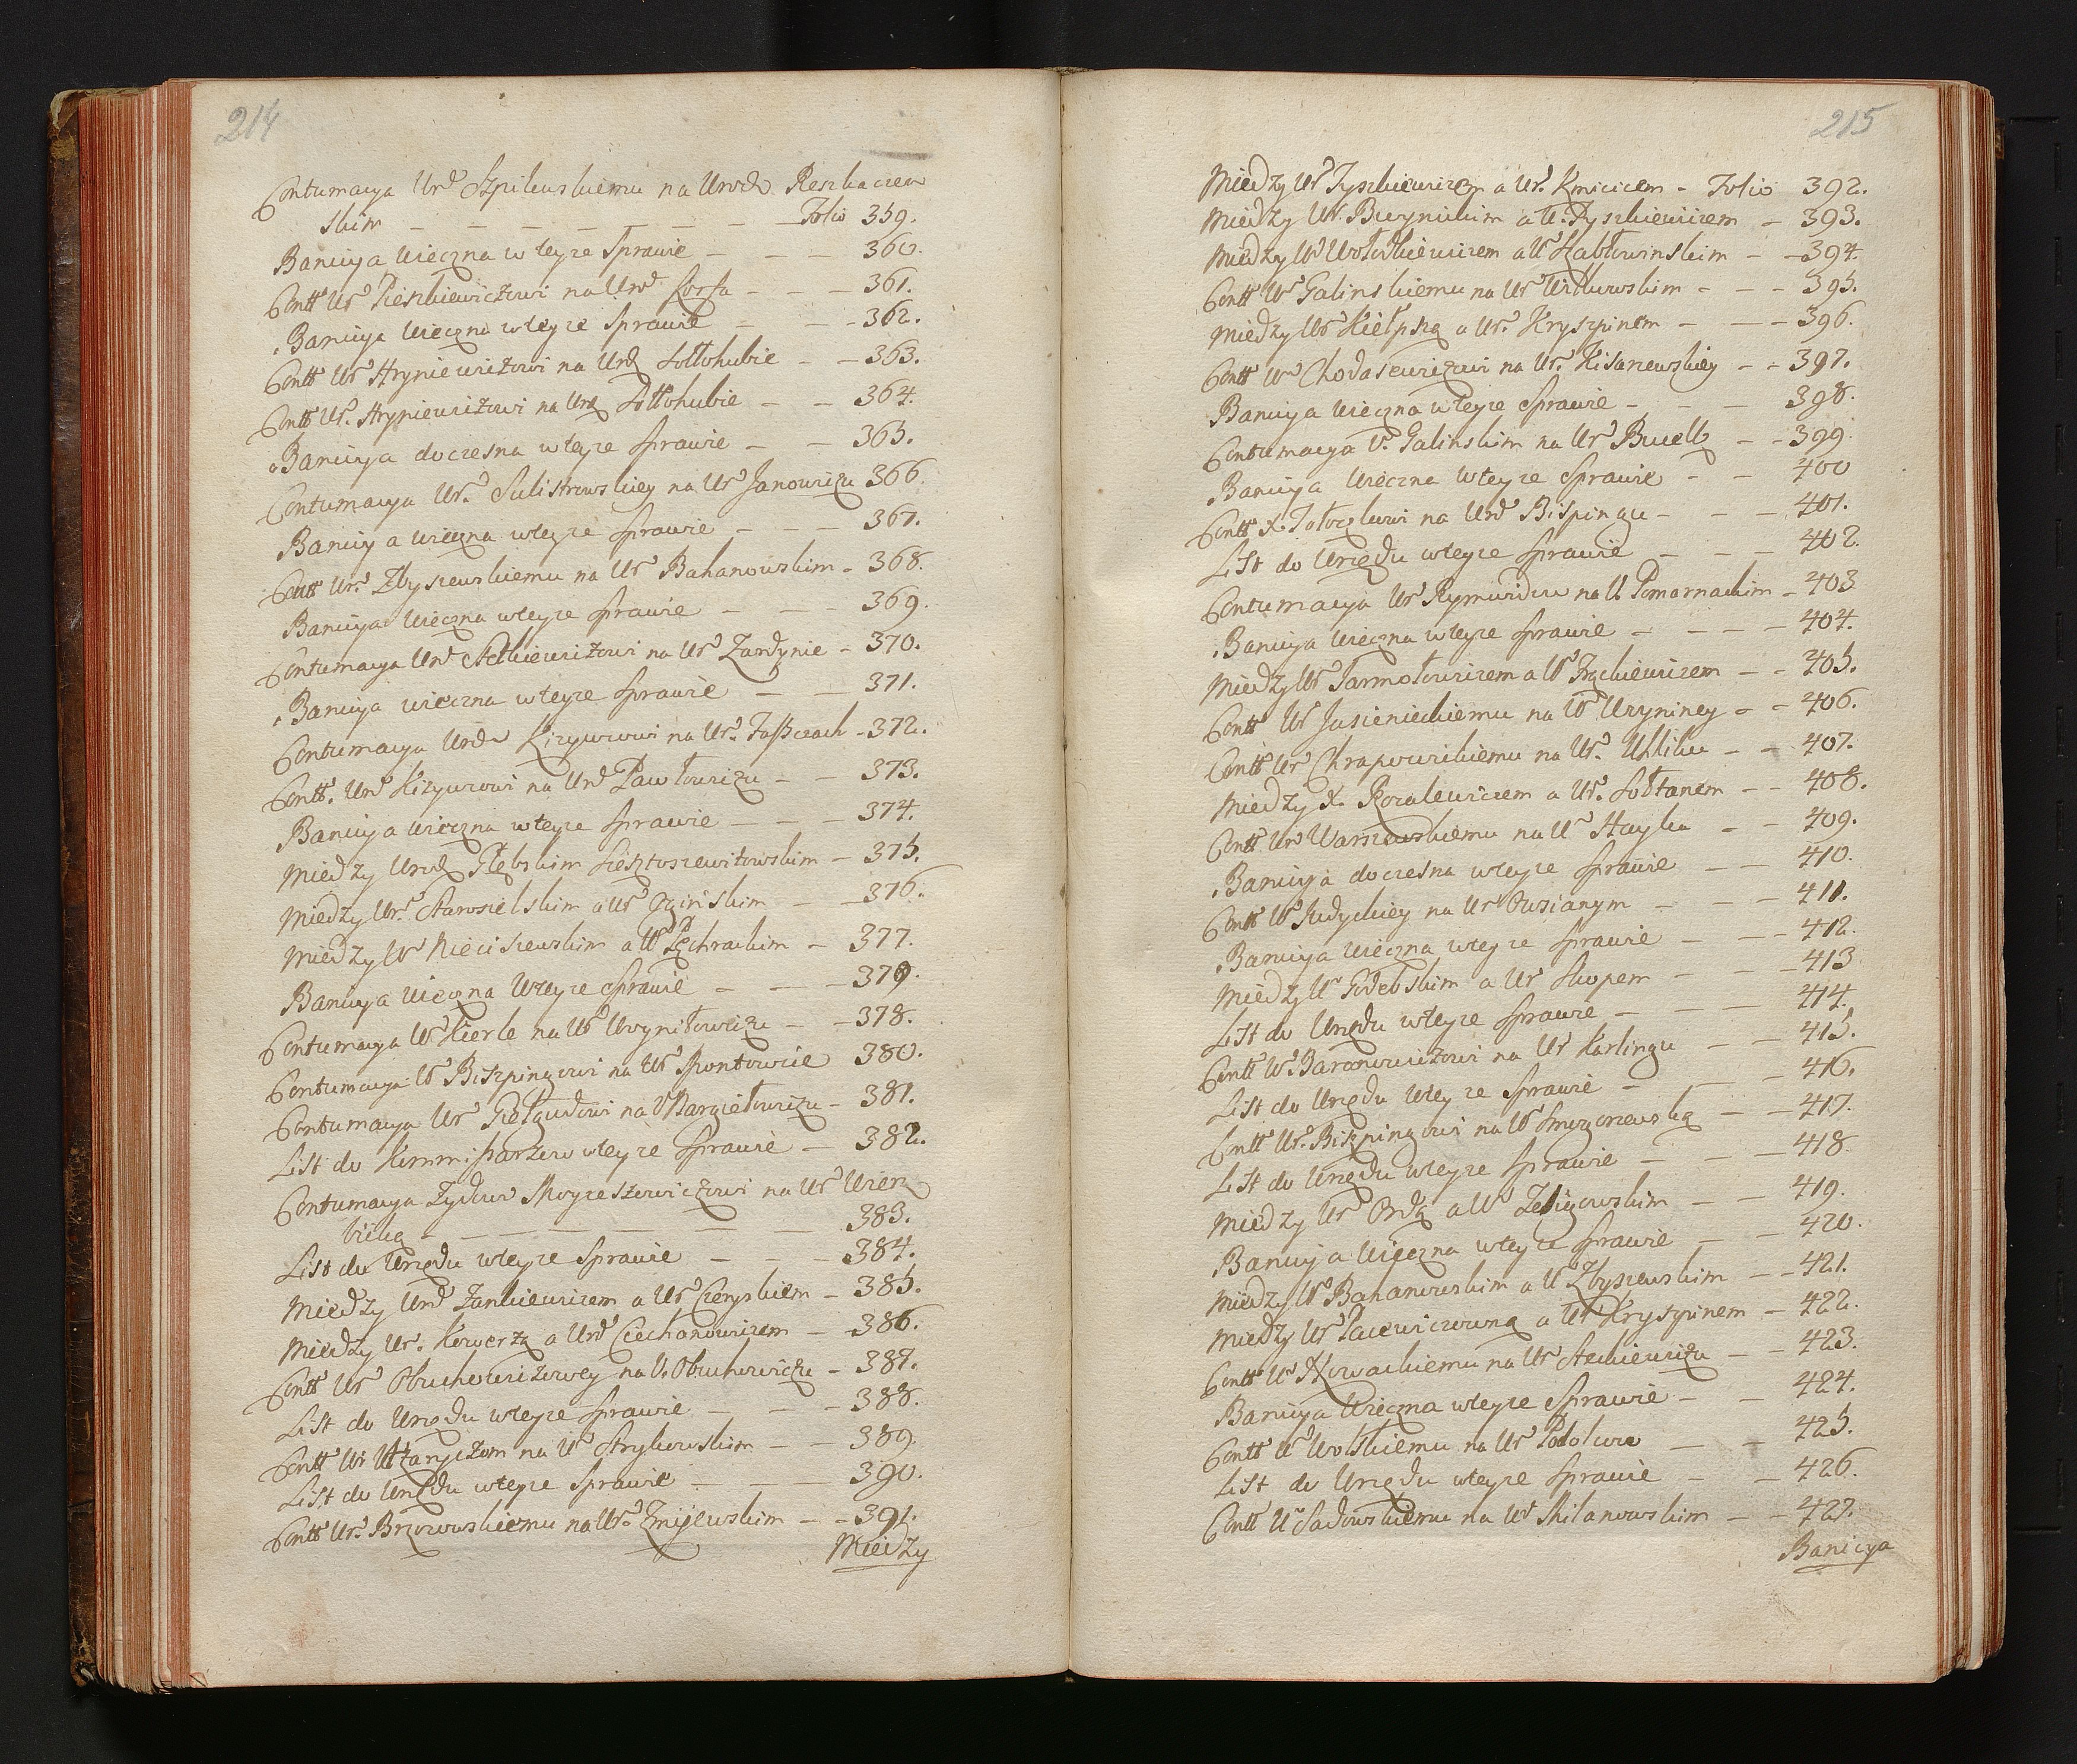 214
Contumacya Urd Szpilewskiemu na Urodz. Reszkaczew
skim Folio 359.
Banicya wieczna w teyze Sprawie 360.
Contt. Ur Pieszkiewiczowi na Urod Korfa 361.
Banicya wieczna w teyze Sprawie 362.
Contt Ur Hryniewiczowi na Urdz Sołłohubie 363.
Contt Ur. Hryniewiczowi na Urdz Sołłohubie 364.
Banicya doczesna w teyze Sprawie 365.
Contumacya Ur. Sulistrowskiey na Ur Janowiczu 366.
Banicya wieczna w teyze Sprawie 367.
Contt Ur. Zbyszewskiemu na Ur Bahanowskim 368.
Banicya wieczna w teyze Sprawie 369.
Contumacya Urd Steckiewiczowi na Ur Zardynie 370.
Banicya wieczna w teyze Sprawie 371.
Contumacya Urodz Kizywrowi na Ur. 372.
Contt. Urd Kizywrowi na Urd Pawłowiczu 373.
Banicya wieczna w teyze Sprawie 374.
Miedzy Urodz Głębskim 375.
Miedzy Ur. Starosielskim a Ur Ogińskim 376.
Miedzy Ur Nieciszewskim a Ur Pęchrackim 377.
Banicya wieczna w teyze Sprawie 379.
Contumacya Ur Kierle na Ur 378.
Contumacya Ur Biszpingowi na Ur Montowcie 380.
Contumacya Ur Giełgudowi na U Bargiełowiczu 381.
List do Kommissarzow w teyze Sprawie 382.
Contumacya Zydowi Moyzeszowiczowi na Ur Wierz
bicką 383.
List do Urzędu w teyze Sprawie 384.
Miedzy Urd Zankiewiczem a Ur Czerskiem 385.
Miedzy Ur. a Urd Ciechanowiczem 386.
Contt Ur Obuchowiczowey na U. Obuchowiczu 387.
List do Urzędu w teyze Sprawie 388.
Contt Ur na Ur Strykowskim 389.
List do Urzędu w teyze Sprawie 390.
Contt Ur. Brzozowskiemu na Ur. Zmijewskim 391.
Miedzy
215
Miedzy Ur Tyszkiewiczem a Ur. Kmicicem Folio 392.
Miedzy Ur. Burynickim a U. Tyszkiewiczem 393.
Miedzy Ur Wołodkiewiczem a Ur Szabłowinskim 394.
Contt Ur Galinskiemu na Ur Witkowskim 395.
Miedzy Ur Kiełpszą a Ur. Kryszpinem 396.
Contt Ur Chodasewiczowi na Ur. Kisarzewskiey 397.
Banicya wieczna w teyze Sprawie 398.
Contumacya U. Galinskim na Ur Buell 399.
Banicya wieczna w teyze Sprawie 400
Contt X. na Urd Biszpingu 401.
List do Urzędu w teyze Sprawie 402.
Contumacya Ur Rymwidu na U. Pomarnackim 403
Banicya wieczna w teyze Sprawie 404.
Miedzy Ur Jarmołowiczem a Ur 405.
Contt Ur Jasienieckiemu na Ur 406.
Contt Ur Chrapowickiemu na Ur. 407.
Miedzy X. Kozakewiczem a Ur. Sołtanem 408.
Contt Ur Warszewskiemu na U Hayku 409.
Banicya doczesna w teyze Sprawie 410.
Contt Ur Judyckiey na Ur Owsianym 411.
Banicya wieczna w teyze Sprawie 412.
Miedzy U Godebskim a Ur Skopem 413
List do Urzędu w teyze Sprawie 414.
Contt Ur. Baronowiczowi na Ur Karlingu 415.
List do Urzędu w teyze Sprawie 416.
Contt Ur. Biszpingowi na Ur Smogorzewską 417.
List do Urzędu w teyze Sprawie 418.
Miedzy Ur Ordą a Ur Zeligowskim 419.
Banicya wieczna w teyze Sprawie 420.
Miedzy Ur Bahanowskim a U Zbyszewskim 421.
Miedzy Ur Pacewiczowną a Ur Kryszpinem 422.
Contt Ur Nowackiemu na Ur Steckiewiczu 423.
Banicya wieczna w teyze Sprawie 424.
Contt Ur Wolskiemu na Ur 425.
List do Urzędu w teyze Sprawie 426.
Contt U Sadowskiemu na Ur Milanowskim 427.
Banicya